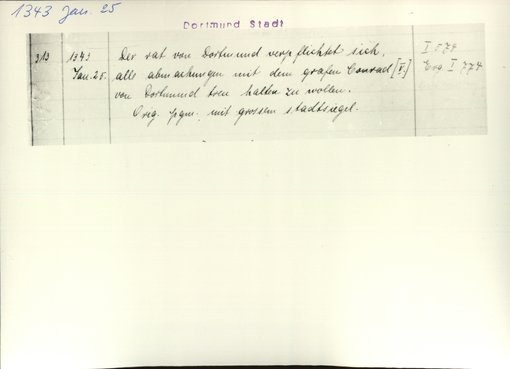 1343 Jan. 25
Dortmund Stadt
313
1343
Jan. 25.
Der rat von Dortmund verpflichtet sich,
alle abmachungen mit dem grafen Conrad [V.]
von Dortmund treu halten zu wollen.
Orig. pgm. mit grossem stadtsiegel.
I 574
Erg. I 774